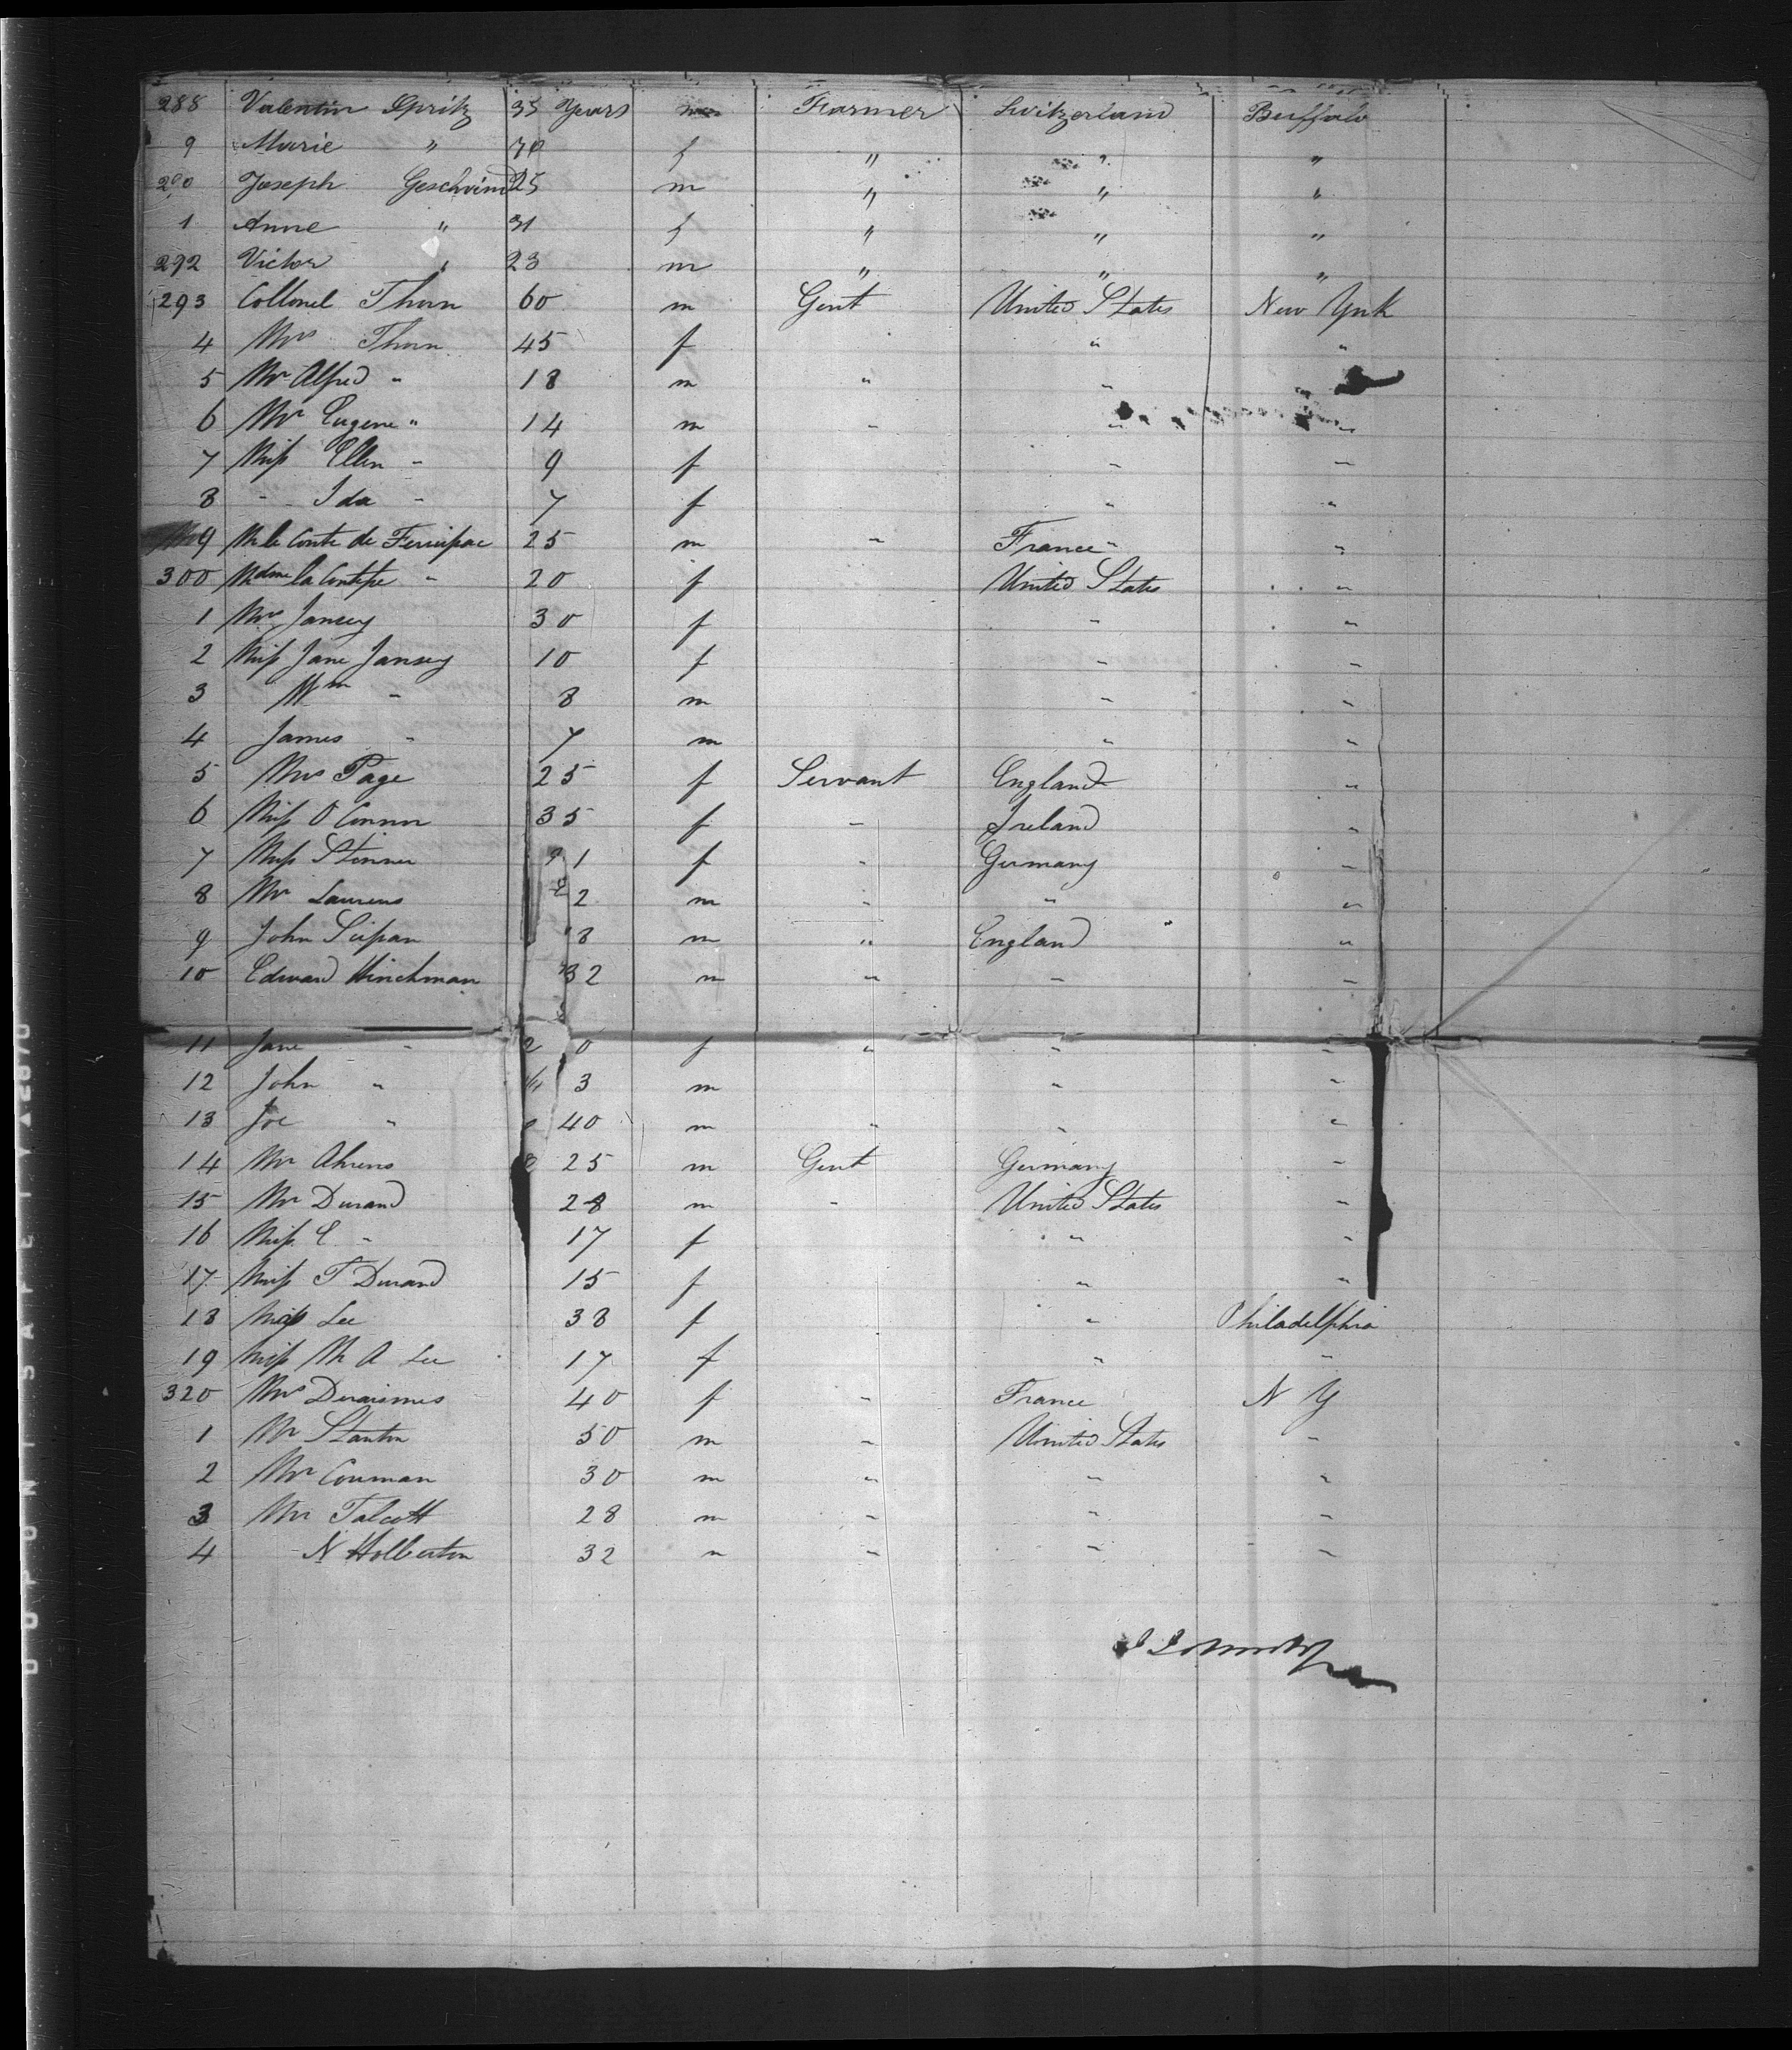 288 Valentin Spritz 35 Years m Farmer Switzerland Buffalo
9 Marie " f " " "
290 Joseph Geschwind 25 m " " "
1 Anne " 31 f " " "
292 Victor " 23 m " " "
293 Collonel Thorn 60 m Gent United States New York
4 Mrs Thorn 45 f " "
5 Mr Alfred " 18 m " "
6 Mr Eugene " 14 m " " "
7 Miss Ellen " 9 f " "
8 " Ida " 7 f " "
9 Mr le Conte de 25 m " France "
300 Mdme la Contesse " 20 f United States "
1 Mrs Jansey 30 f " "
2 Miss Jane Jansey 10 f " "
3 Wm " 8 m " "
4 James " 7 m " "
5 Mrs Page 25 f Servant England "
6 Miss O Connor 35 f " Ireland "
7 Miss Stinner 1 f " Germany "
8 Mr Laurens 22 m " " "
9 John 18 m " England "
10 Edward Hinchman 32 m " " "
11 Jane " 20 f " " "
12 John " 3 m " "
13 Joe " 40 m " " "
14 Mr Ahrens 25 m Gent Germany "
15 Mr Durand 28 m " United States "
16 Miss C " 17 f " "
17 Miss T Durand 15 f " "
18 Lee 38 f " Philadelphia
19 Miss M A Lee 17 f " "
320 Mrs Deraismes 40 f " France N Y
1 Mr Stanton 50 m " United States "
2 Mr Couman 30 m " " "
3 Mr Talcott 28 m " " "
4 " N Holberton 32 m " " "